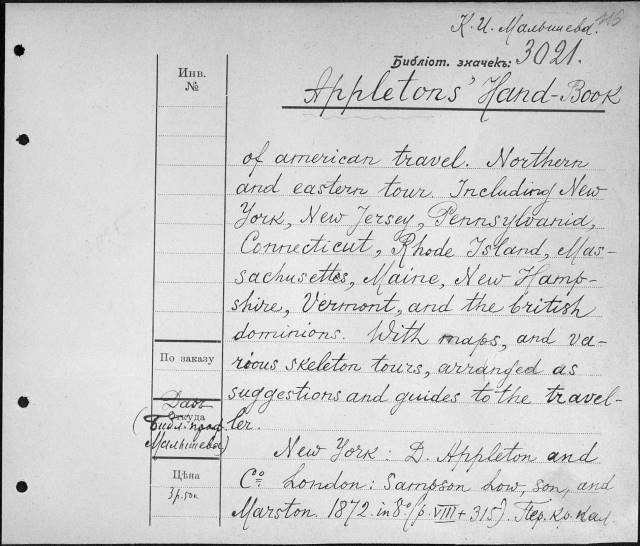 К. И. Малышева. 113
Библіот. значекъ: 3021.
Инв. №
Appletons' Hand-Book
of american travel. Northern
and eastern tour. Including New
York, New Jersey, Pennsylvania,
Connecticut, Rhode Island, Mas-
sachusettes, Maine, New Hamp-
shire, Vermont, and the british
dominions. With maps, and va-
rious skeleton tours, arranged as
suggestions and guides to the travel-
ler.
По заказу
Даръ
Откуда
(Библ. проф.
Малышева)
New York: D. Appleton and
Cº: London: Sampson Low, son, and
Marston. 1872. in 8º (p. VIII + 315). Пер. кр. кал
Цѣна
3 р. 50 к.